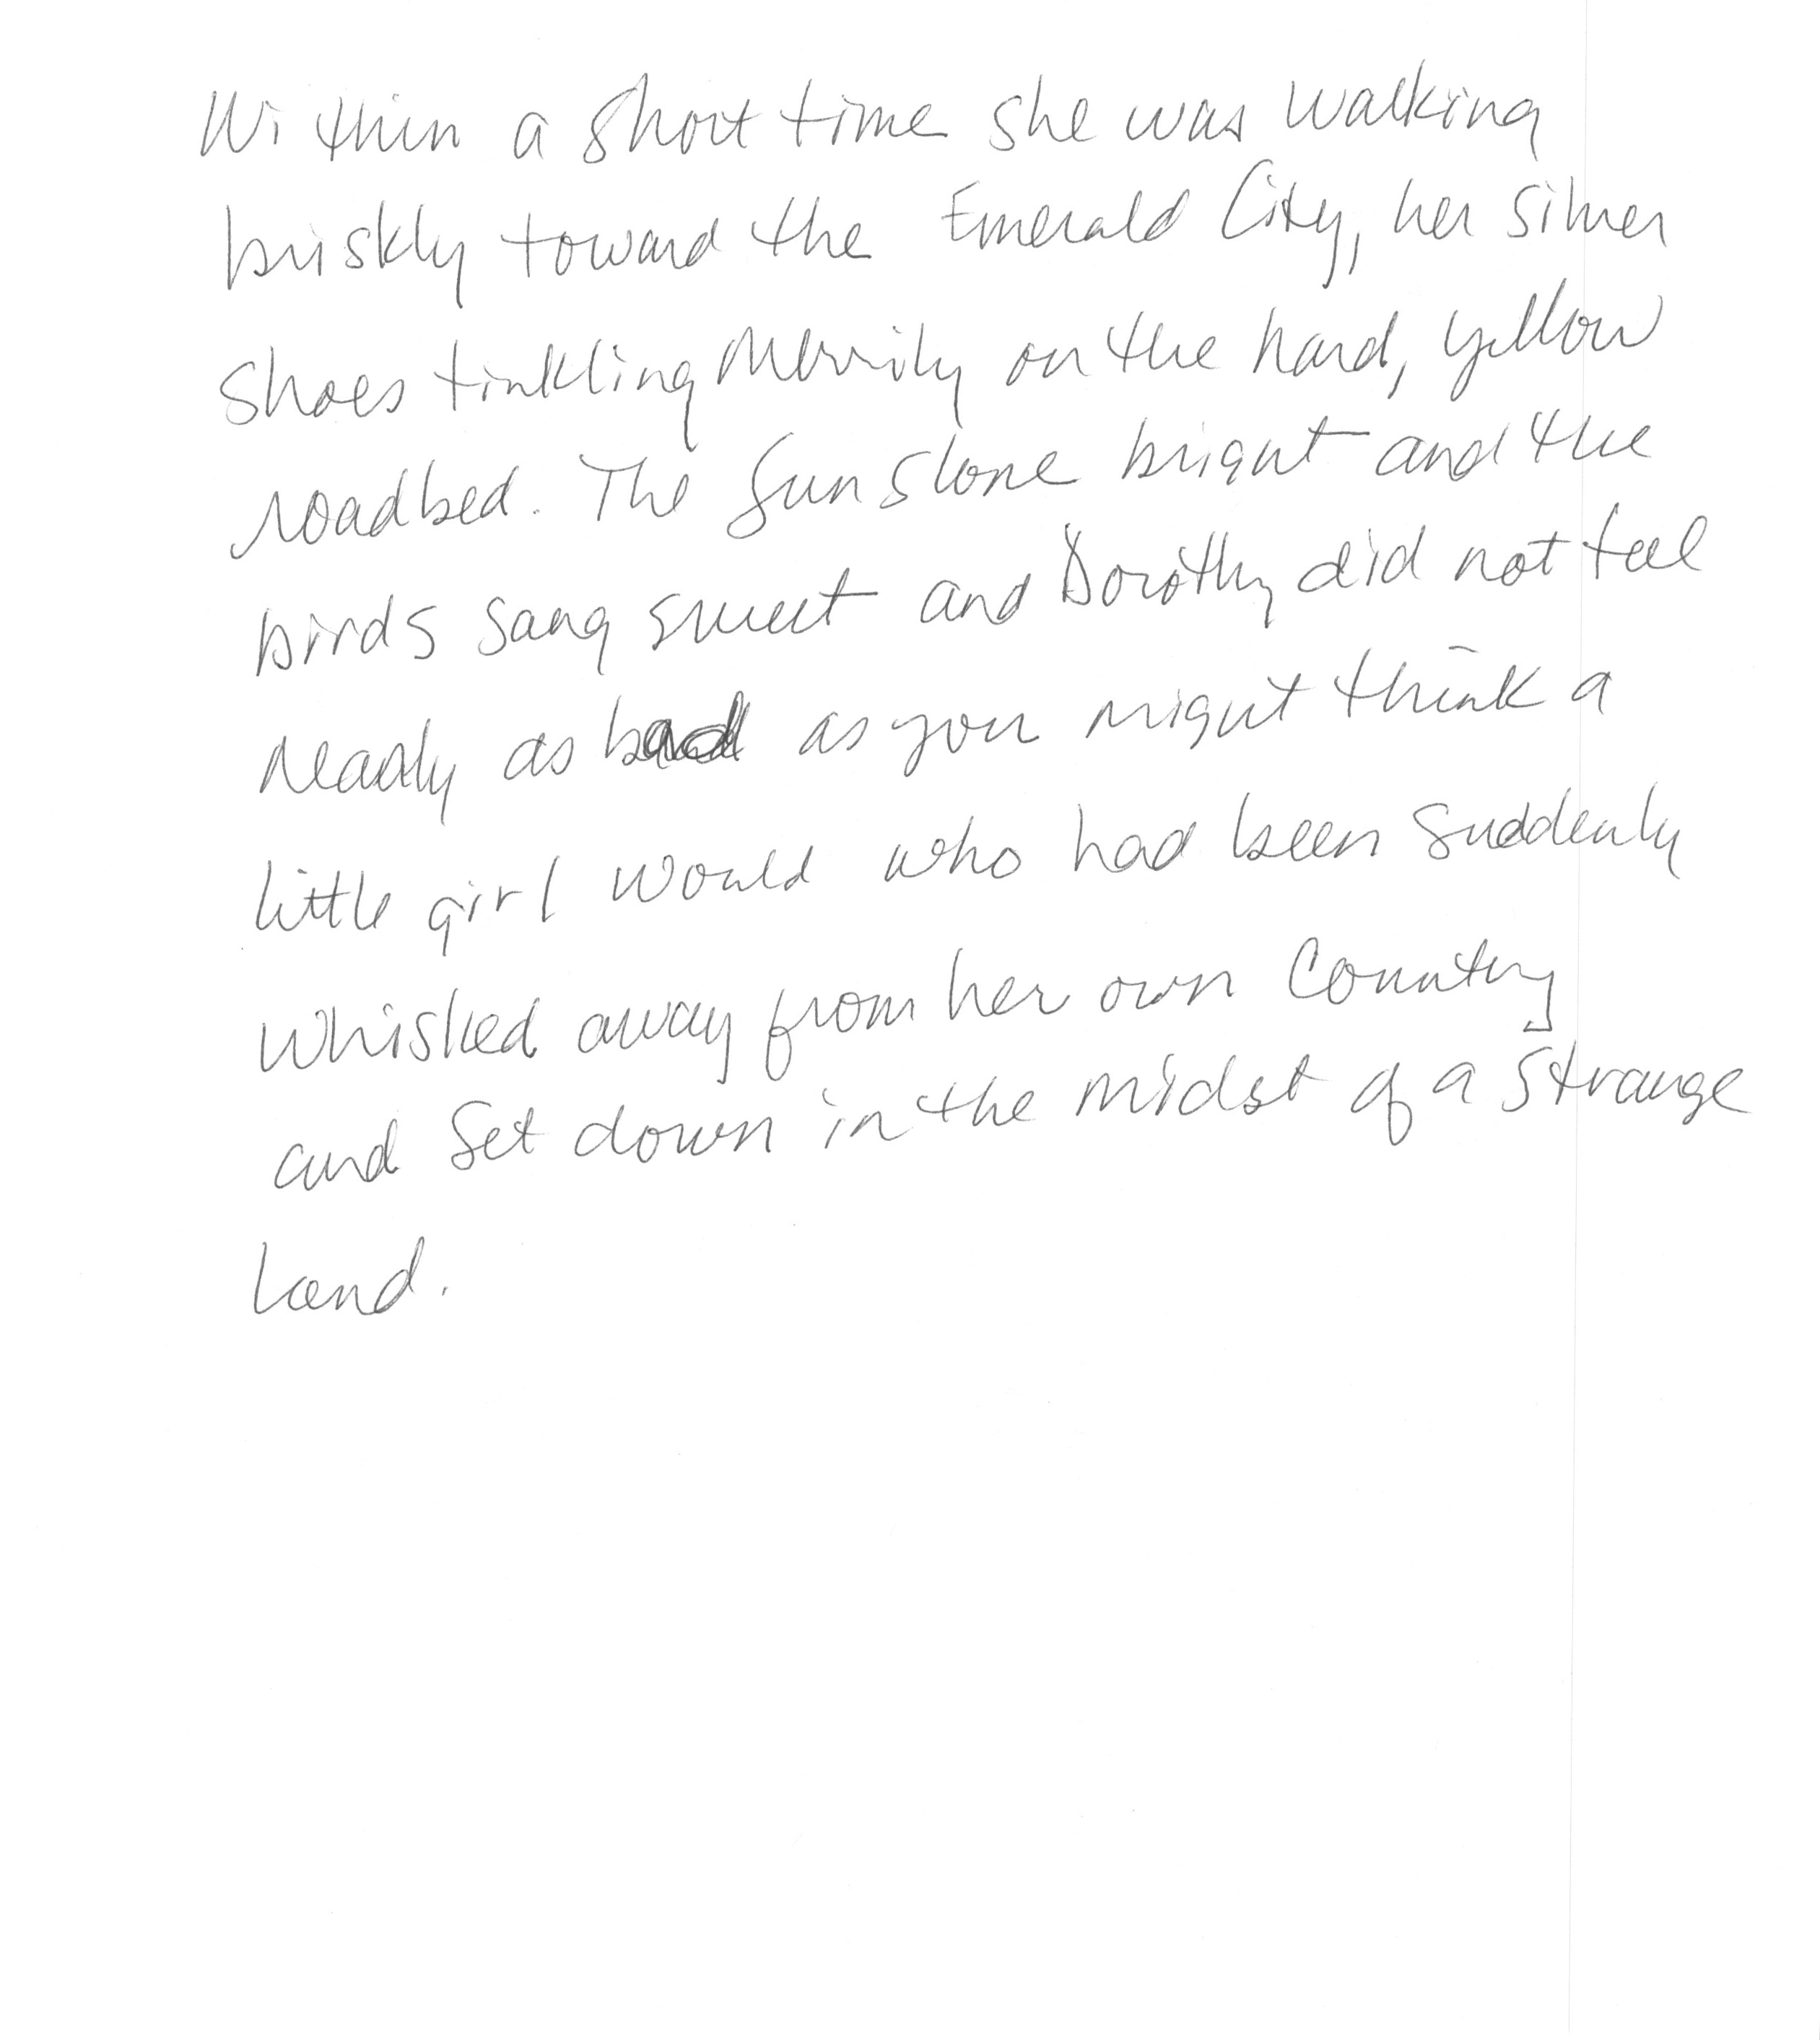 Within a short time she was walking
briskly toward the Emerald City, her silver
shoes tinkling merrily on the hard, yellow
roadbed. The sun shone bright and the
birds sang sweet and Dorothy did not feel
nearly as bad as you might think a
little girl would who had been suddenly
whisked away from her own country
and set down in the midst of a strange
land.